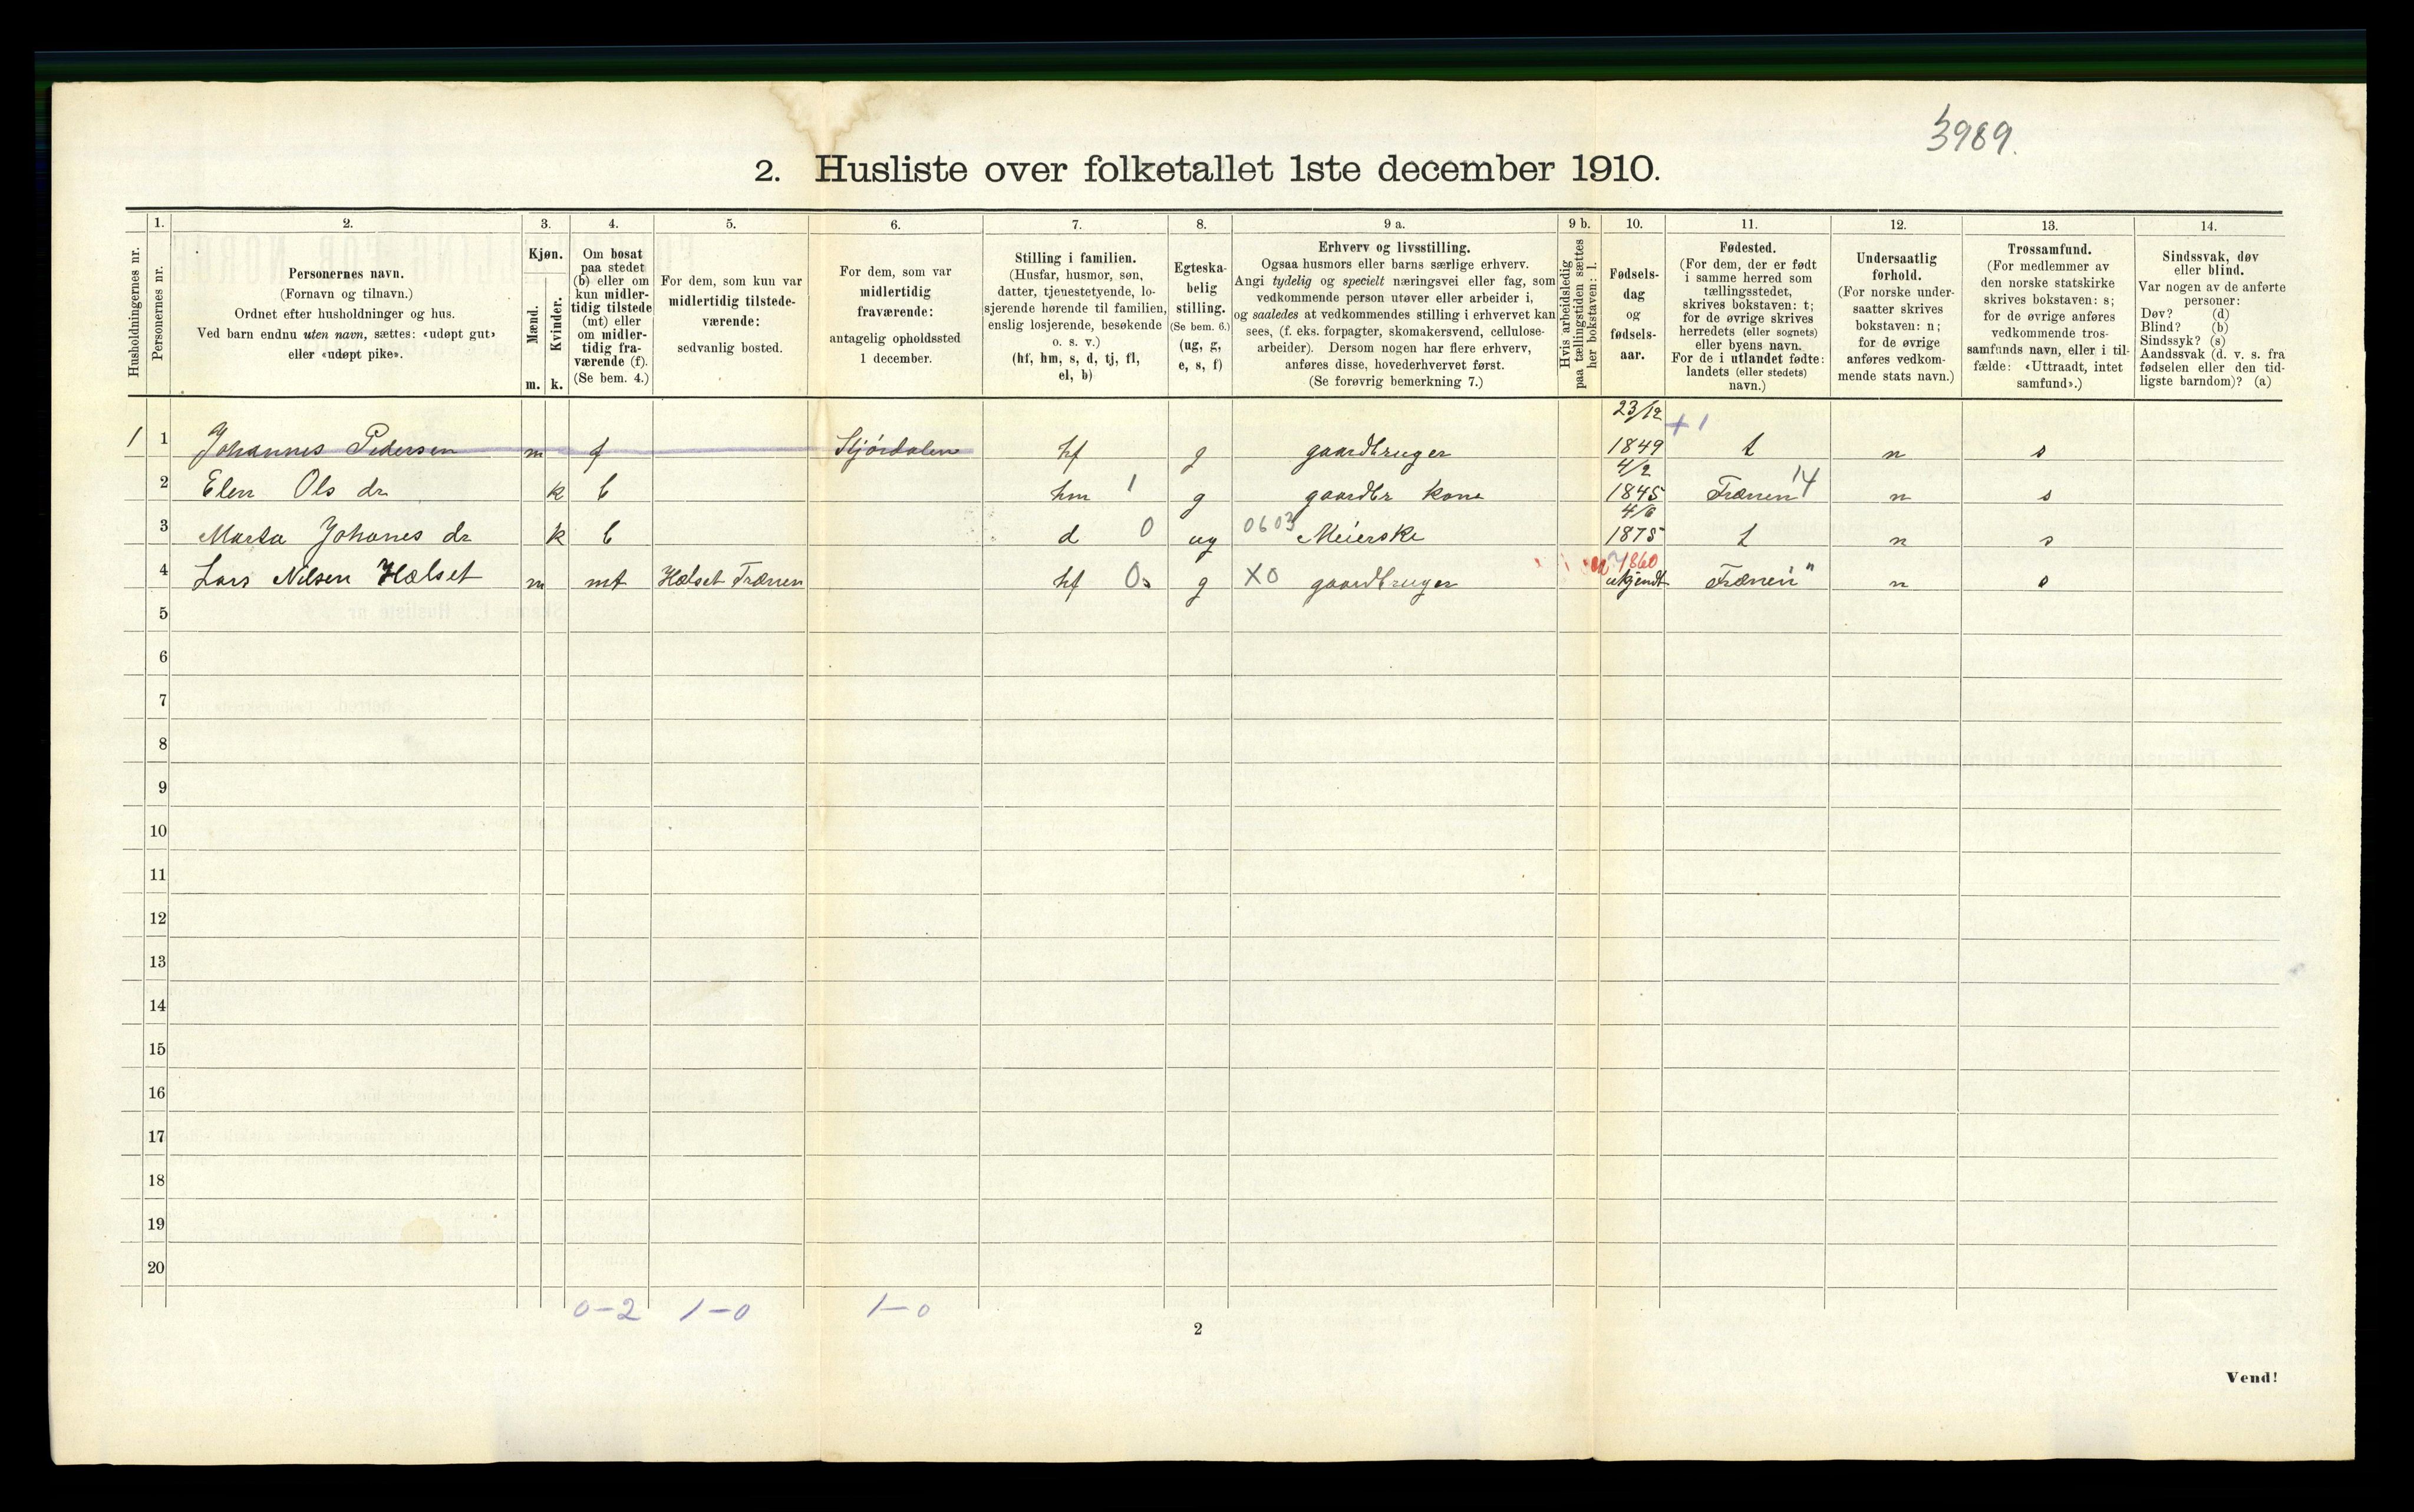 3989.
2. Husliste over folketallet 1ste december 1910.
Husholdningernes nr.
1.
Personernes nr.
2.
Personernes navn.
(Fornavn og tilnavn.)
Ordnet efter husholdninger og hus.
Ved barn endnu uten navn, sættes: «udøpt gut»
eller «udøpt pike».
3.
Kjøn.
Mænd.
Kvinder.
m. k.
4.
Om bosat
paa stedet
(b) eller om
kun midler-
tidig tilstede
(mt) eller
om midler-
tidig fra-
værende (f).
(Se bem. 4.)
5.
For dem, som kun var
midlertidig tilstede-
værende:
sedvanlig bosted.
6.
For dem, som var
midlertidig
fraværende:
antagelig opholdssted
1 december.
7.
Stilling i familien.
(Husfar, husmor, søn,
datter, tjenestetyende, lo-
sjerende hørende til familien,
enslig losjerende, besøkende
o. s. v.)
(hf, hm, s, d, tj, fl,
el, b)
8.
Egteska-
belig
stilling.
(Se bem. 6.)
(ug, g,
e, s, f)
9 a.
Erhverv og livsstilling.
Ogsaa husmors eller barns særlige erhverv.
Angi tydelig og specielt næringsvei eller fag, som
vedkommende person utøver eller arbeider i,
og saaledes at vedkommendes stilling i erhvervet kan
sees, (f. eks. forpagter, skomakersvend, cellulose-
arbeider). Dersom nogen har flere erhverv,
anføres disse, hovederhvervet først.
(Se forøvrig bemerkning 7.)
9 b.
Hvis arbeidsledig
paa tællingstiden sættes
her bokstaven: l.
10.
Fødsels-
dag
og
fødsels-
aar.
11.
Fødested.
(For dem, der er født
i samme herred som
tællingsstedet,
skrives bokstaven: t;
for de øvrige skrives
herredets (eller sognets)
eller byens navn.
For de i utlandet fødte:
landets (eller stedets)
navn.)
12.
Undersaatlig
forhold.
(For norske under-
saatter skrives
bokstaven: n;
for de øvrige
anføres vedkom-
mende stats navn.)
13.
Trossamfund.
(For medlemmer av
den norske statskirke
skrives bokstaven: s;
for de øvrige anføres
vedkommende tros-
samfunds navn, eller i til-
fælde: «Uttraadt, intet
samfund».)
14.
Sindssvak, døv
eller blind.
Var nogen av de anførte
personer:
Døv? (d)
Blind? (b)
Sindssyk? (s)
Aandssvak (d. v. s. fra
fødselen eller den tid-
ligste barndom)? (a)
23/12 +1
1 1 Johannes Pedersen m f Stjørdalen hf g gaardbruger 1849 t n s
4/2
2 Elen Ols dr k b hm 1 g gaardbr kone 1845 Frænen 14 n s
4/6
3 Marta Johanes dr k b d 0 ug 0603 Meierske 1875 t n s
1860
4 Lars Nilsen Hælset m mt Hælset Frænen hf 0 g X0 gaardbruger ukjendt Frænen " n s
5
6
7
8
9
10
11
12
13
14
15
16
17
18
19
20
0-2 1-0 1-0
2
Vend!